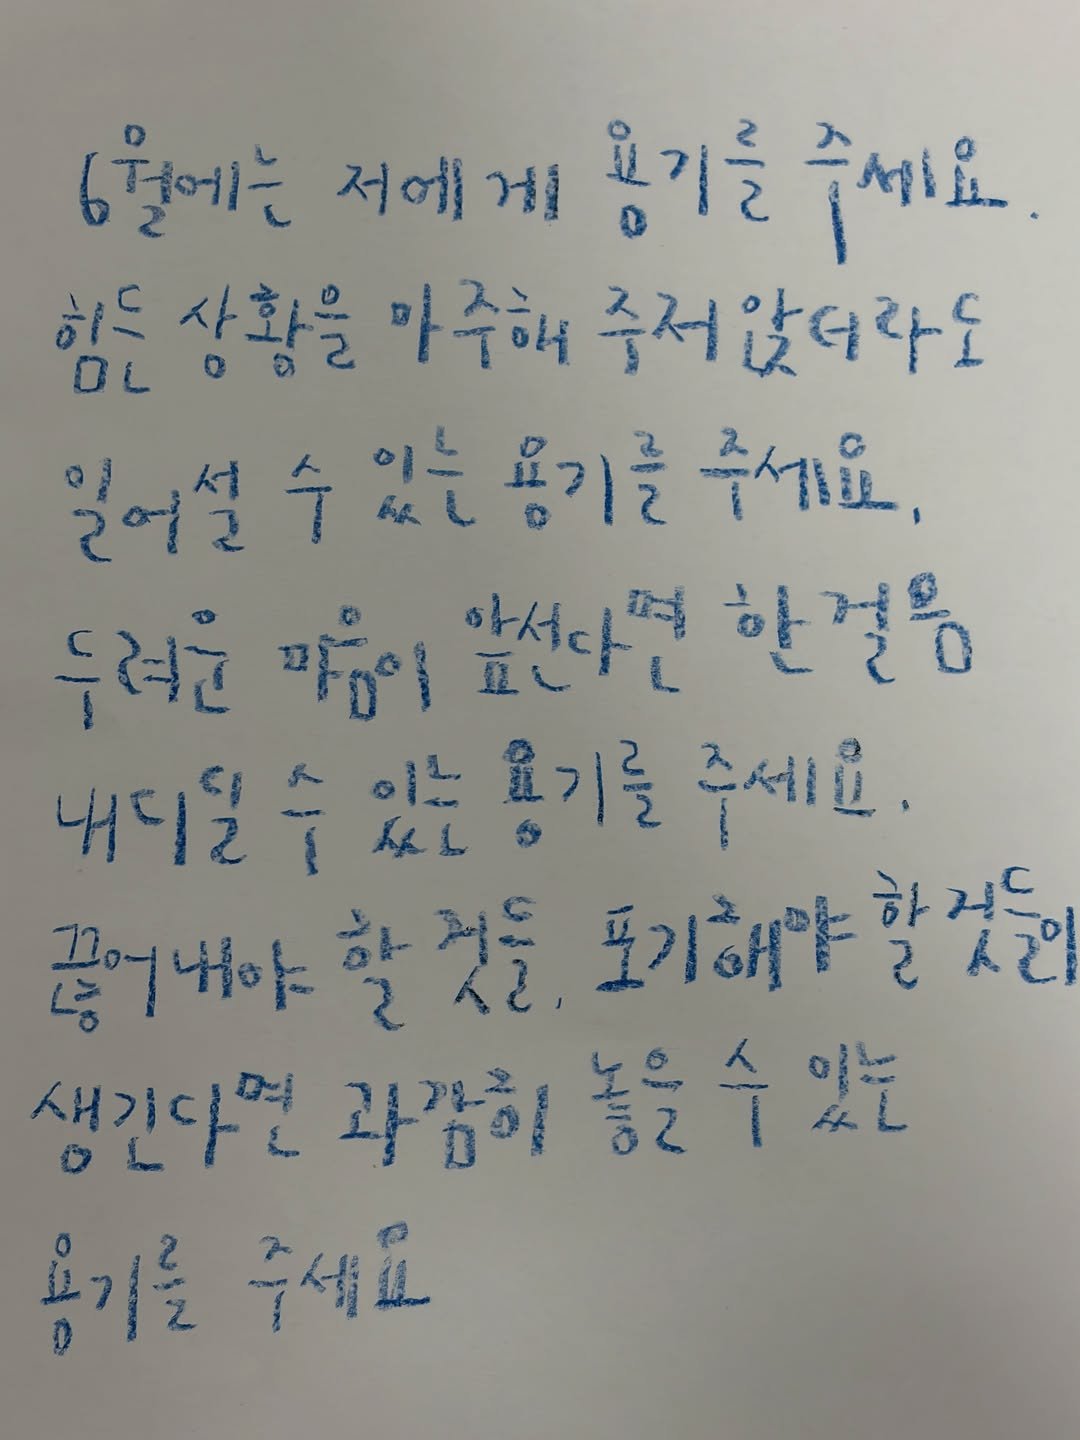 6월에는 저에게 용기를 주세요.
힘든 상황을 마주해 주저 앉더라도
일어설 수 있는 용기를 주세요.
두려운 마음이 앞선다면 한 걸음
내디딜 수 있는 용기를 주세요.
끊어내야 할 것들, 포기해야 할 것들이
생긴다면 과감히 놓을 수 있는
용기를 주세요